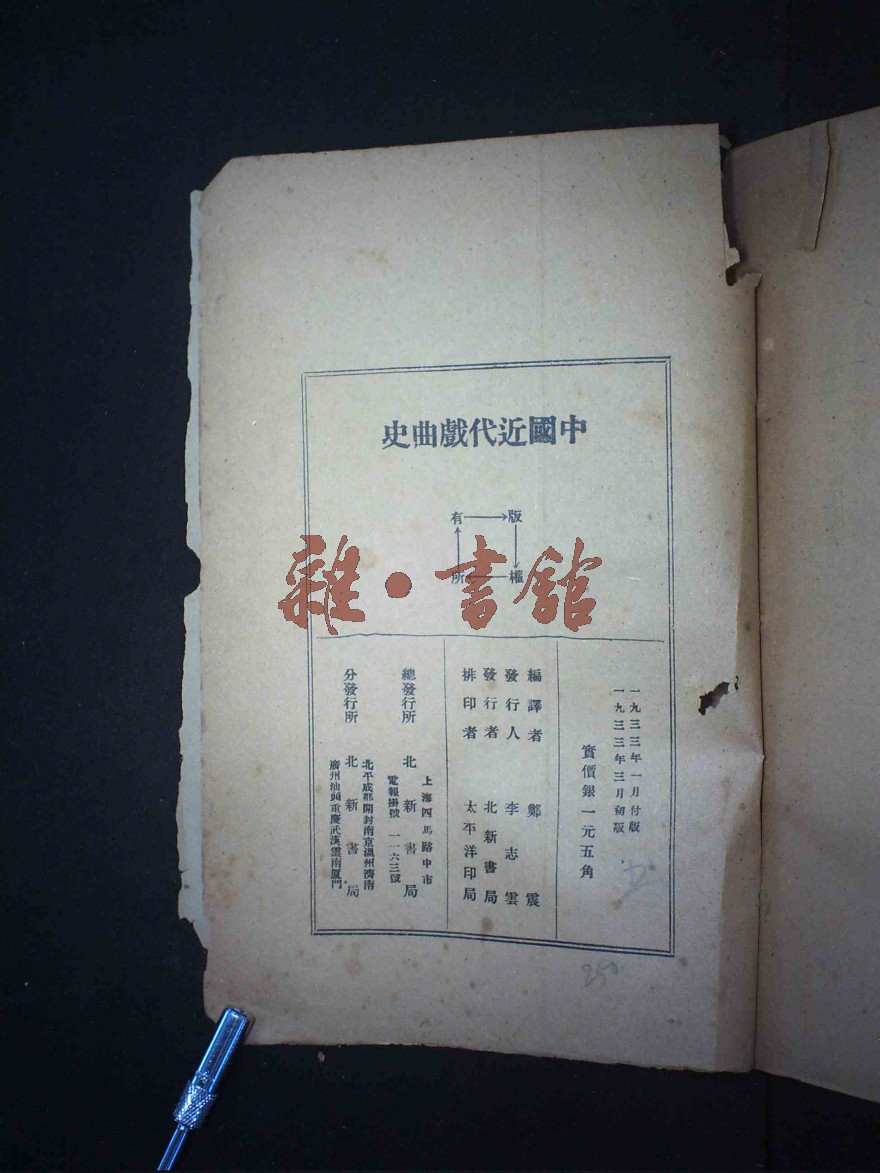 中國近代戲曲史
版權所有
雜·書館
一九三三年一月付版
一九三三年三月初版
實價銀一元五角
編譯者 鄭震
發行人 李志雲
發行者 北新書局
排印者 太平洋印局
上海四馬路中市
總發行所 北新書局
電報掛號 一一六三號
北平成都開封南京溫州濟南
分發行所 北新書局
廣州汕頭重慶武漢雲南厦門
250